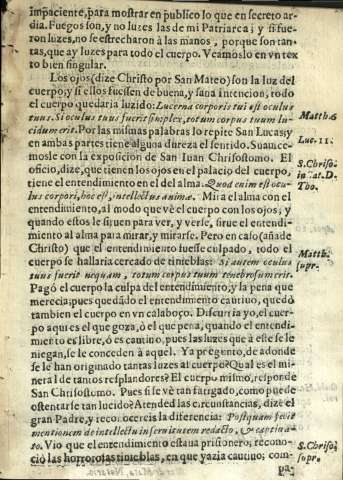 impaciente, para mostrar en publico lo que en secreto ar-
dia. Fuegos son, y no luzes las de mi Patriarca; y si fue-
ron luzes, no se estrecharon à las manos, porque son tan-
tas, que ay luzes para todo el cuerpo. Veamoslo en vn tex
to bien singular.
Los ojos (dize Christo por San Mateo) son la luz del
cuerpo; y si ellos fuessen de buena, y sana intencion, todo
el cuerpo quedaria luzido: Lucerna corporis tui est oculus
tuus. Si oculus tuus fuerit simplex, totum corpus tuum lu-
cidum erit. Por las mismas palabras lo repite San Lucas; y
en ambas partes tiene alguna dureza el sentido. Suauice-
mosle con la exposicion de San Iuan Chrisostomo. El
oficio, dize, que tienen los ojos en el palacio del cuerpo,
tiene el entendimiento en el del alma. Quod enim est ocu-
lus corpori, hoc est, intellectus animæ. Mira el alma con el
entendimiento, al modo que vè el cuerpo con los ojos, y
quando estos le siruen para ver, y verse, sirue el entendi-
miento al alma para mirar, y mirarse. Pero en caso (añade
Christo) que el entendimiento fuesse culpado, todo el
cuerpo se hallaria cercado de tinieblas: Si autem oculus
tuus fuerit nequam, totum corpus tuum tenebrosum erit.
Pagó el cuerpo la culpa del entendimiento, y la pena que
merecia; pues quedãdo el entendimiento cautiuo, quedò
tambien el cuerpo en vn calaboço. Discurria yo, el cuer-
po aqui es el que goza, ò el que pena, quando el entendi-
miento es libre, ó es cautiuo, pues las luzes que à este se le
niegan, se le conceden à aquel. Ya pregunto, de adonde
se le han originado tantas luzes al cuerpo? Qual es el mi-
neral de tantos resplandores? El cuerpo mismo, responde
San Chrisostomo. Pues si se vè tan fatigado, como puede
ostentarse tan lucido? Atended las circunstancias, dize el
gran Padre, y reconocereis la diferencia: Postquam fecit
mentionem de intellectu in seruitutem redacto, & captiua-
to. Vio que el entendimiento estaua prisionero, recono-
ció las horrorosas tinieblas, en que yazia cautiuo; com-
pa-
Matth. 6
Luc. 11.
S. Chriso.
in Cat. D.
Tho.
Matth.
supr.
S. Chriso
supr.